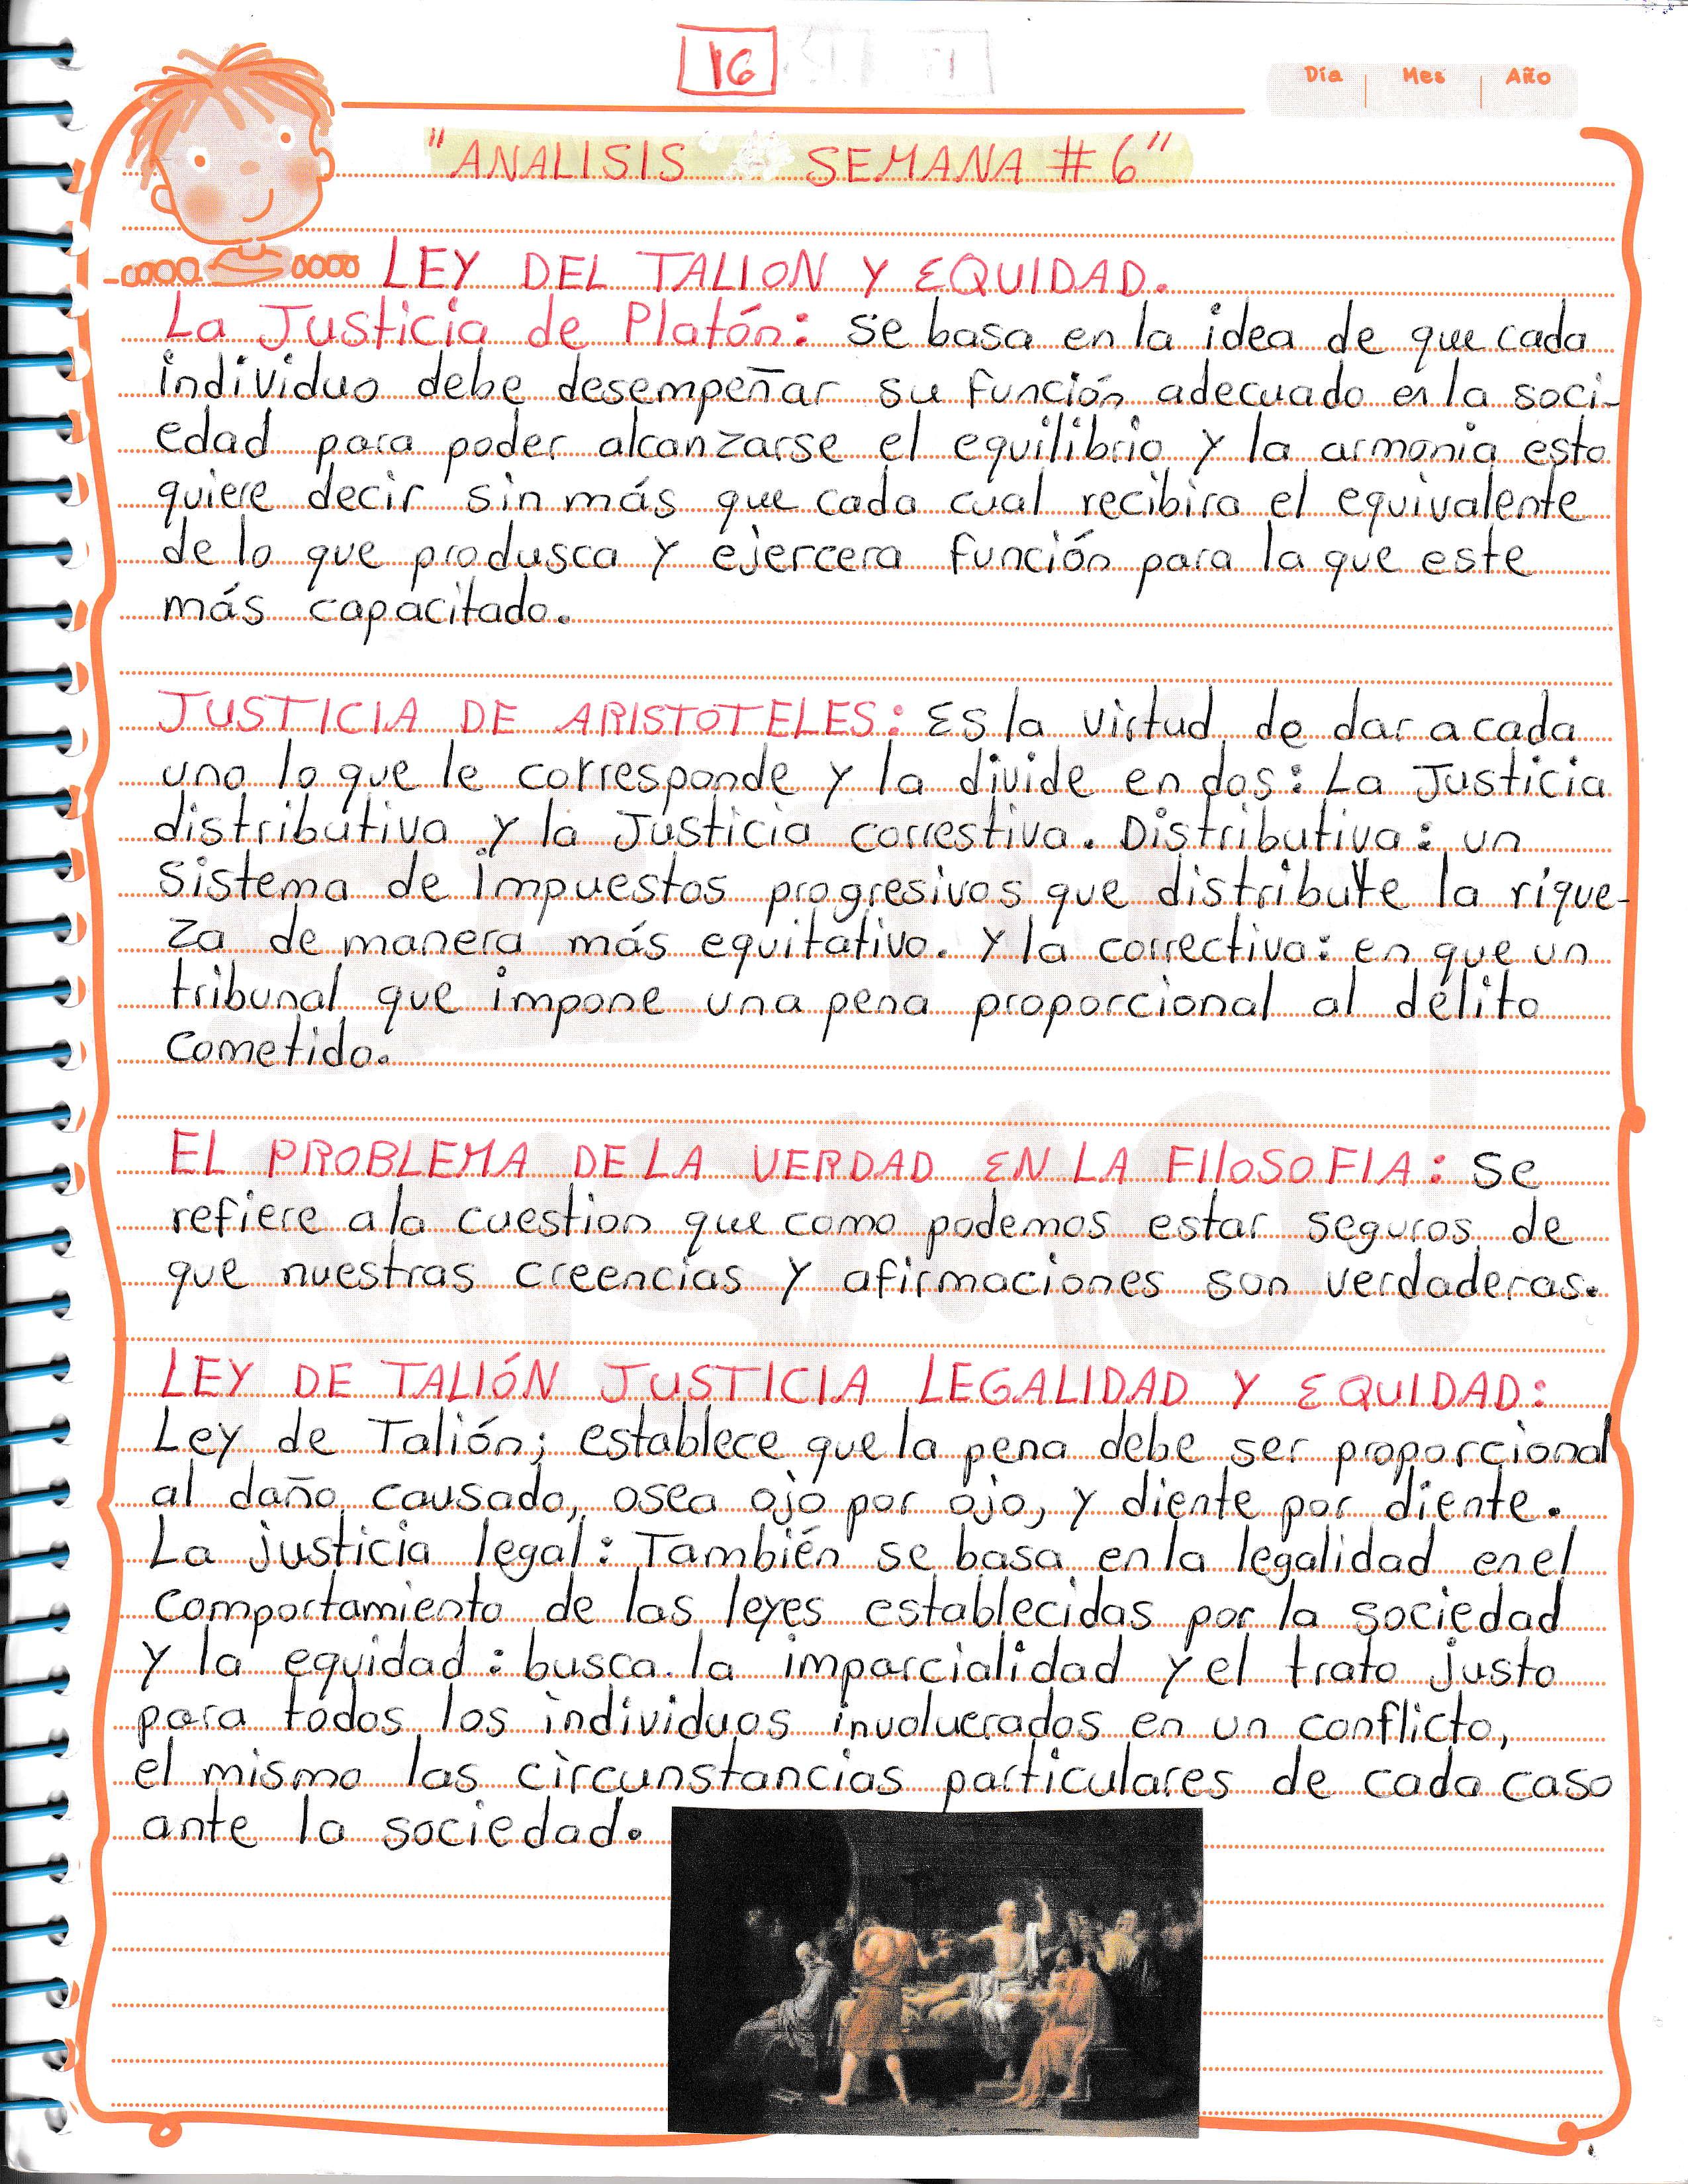 16
Día Mes Año
"ANALISIS SEMANA #6"
LEY DEL TALION Y EQUIDAD.
La Justicia de Platón: se basa en la idea de que cada
individuo debe desempeñar su función adecuado en la soci-
edad para poder alcanzarse el equilibrio y la armonia esto
quiere decir sin más que cada cual recibira el equivalente
de lo que produsca y ejercera función para la que este
más capacitado.
JUSTICIA DE ARISTOTELES: Es la virtud de dar a cada
uno lo que le corresponde y la divide en dos: La Justicia
distributiva y la Justicia correstiva. Distributiva: un
sistema de impuestos progresivos que distribuye la rique-
za de manera más equitativo. Y la correctiva: en que un
tribunal que impone una pena proporcional al délito
cometido.
EL PROBLEMA DE LA VERDAD EN LA FIlOSOFIA: Se
refiere a la cuestion que como podemos estar seguros de
que nuestras creencias y afirmaciones son verdaderas.
LEY DE TALIÓN JUSTICIA LEGALIDAD Y EQUIDAD:
Ley de Talión; establece que la pena debe ser proporcional
al daño causado, osea ojo por ojo, y diente por diente.
La justicia legal: También se basa en la legalidad en el
comportamiento de las leyes establecidas por la sociedad
y la equidad: busca la imparcialidad y el trato justo
para todos los individuos involucrados en un conflicto,
el mismo las circunstancias particulares de cada caso
ante la sociedad.